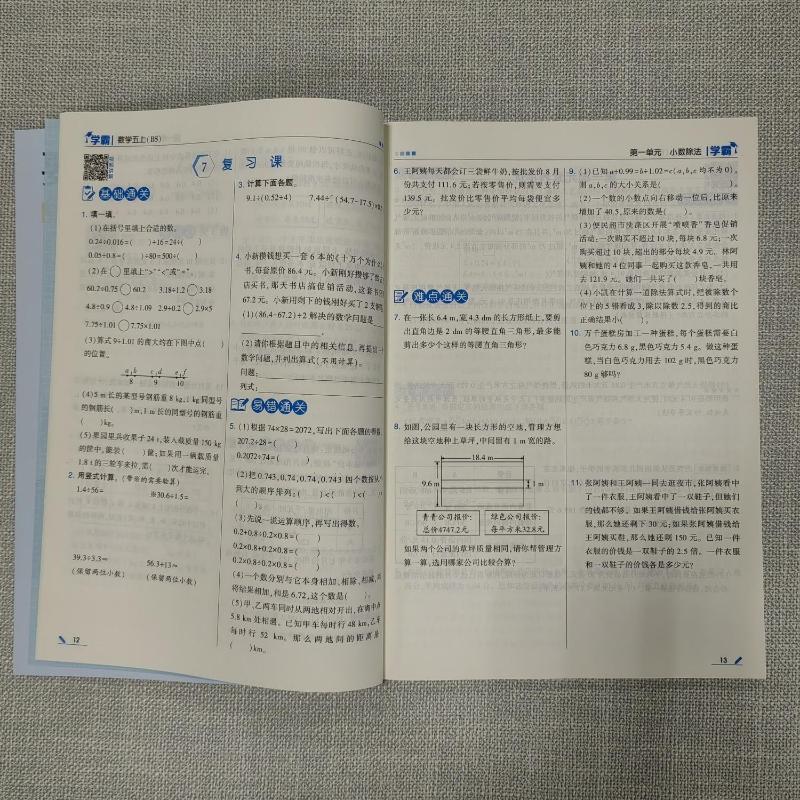 学霸 数学五上(BS)
7 复习课
基础通关
1. 填一填。
(1)在括号里填上合适的数。
0.24÷0.016=( )÷16=24÷( )
0.05÷0.8=( )÷80=500÷( )
(2)在○里填上“>”“<”或“=”。
60.2÷0.75○60.2 3.18÷1.2○3.18
4.8÷0.9○4.8÷1.09 2.9÷0.2○2.9×5
7.75÷1.01○7.75×1.01
(3)算式9÷1.01的商大约在下图中点( )
的位置。
a b c d e f
8 9 10
(4)5 m长的某型号钢筋重8 kg,1 kg同型号
的钢筋长( )m,1 m长的同型号的钢筋重
( )kg。
(5)果园里共收果子24 t,装入载质量150 kg
的筐中,能装( )筐;如果用一辆载质量
1.8 t的三轮车来拉,需( )次才能运完。
2. 用竖式计算。(带※的需要验算)
1.4÷56= ※30.6÷1.5=
39.3÷3.3≈ 56.3÷13≈
(保留两位小数) (保留两位小数)
12
3. 计算下面各题。
9.1÷(0.52÷4) 7.44÷(54.7-17.5)
4. 小新攒钱想买一套6本的《十万个为什么》
书,每套原价86.4元。小新刚好攒够了
店买书,那天书店搞促销活动,这套书
67.2元。小新用剩下的钱刚好买了2支钢笔
(1)(86.4-67.2)÷2解决的数学问题是
(2)请你根据题目中的相关信息,再提出一
数学问题,并列出算式(不用计算)。
问题:
列式:
易错通关
5. (1)根据74×28=2072,写出下面各题的得数。
207.2÷28=( )
0.2072÷74=( )
(2)把0.743,0.74,0.74,0.743四个数按从
到大的顺序排列:( )<( )<(
(3)先说一说运算顺序,再写出得数。
0.2+0.8÷0.2×0.8=( )
0.2×0.8+0.2×0.8=( )
0.2×0.8÷0.2×0.8=( )
(4)一个数分别与它本身相加、相除、相减,再
将结果相加,和是6.72,这个数是( )。
(5)甲、乙两车同时从两地相对开出,在离中点
5.8 km处相遇。已知甲车每时行48 km,乙车
每时行52 km。那么两地间的距离是
( )km。
第一单元 小数除法 学霸
6. 王阿姨每天都会订三袋鲜牛奶,按批发价8月
份共支付111.6元;若按零售价,则需要支付
139.5元。批发价比零售价平均每袋便宜多
少元?
难点通关
7. 在一张长6.4 m,宽4.3 dm的长方形纸上,要剪
出直角边是2 dm的等腰直角三角形,最多能
剪出多少个这样的等腰直角三角形?
8. 如图,公园里有一块长方形的空地,管理方想
给这块空地种上草坪,中间留有1 m宽的路。
18.4 m
9.6 m
1 m
青青公司报价:
总价4747.2元
绿色公司报价:
每平方米32.8元
如果两个公司的草坪质量相同,请你帮管理方
算一算,选用哪家公司比较合算?
9. (1)已知a÷0.99=b÷1.02=c(a,b,c均不为0),
则a,b,c的大小关系是( )。
(2)一个数的小数点向右移动一位后,比原来
增加了40.5,原来的数是( )。
(3)便民超市洗涤区开展“喷喷香”香皂促销
活动:一次购买不超过10块,每块6.8元;一次
购买超过10块,超出的部分每块4.9元。林阿
姨和她的4位同事一起购买这款香皂,一共用
去121.9元。她们一共买了( )块香皂。
(4)小凯在计算一道除法算式时,把被除数个
位上的5错看成3,除以除数2.5,得到的商比
正确结果小( )。
10. 万千蛋糕房加工一种蛋糕,每个蛋糕需要白
色巧克力6.8 g,黑色巧克力5.4 g。做这种蛋
糕,当白色巧克力用去102 g时,黑色巧克力
80 g够吗?
11. 张阿姨和王阿姨一同去逛夜市,张阿姨看中
了一件衣服,王阿姨看中了一双鞋子,但她们
的钱都不够。如果王阿姨借钱给张阿姨买衣
服,那么她还剩下30元;如果张阿姨借钱给
王阿姨买鞋,那么她还剩150元。已知一件
衣服的价钱是一双鞋子的2.5倍。一件衣服
和一双鞋子的价钱各是多少元?
13